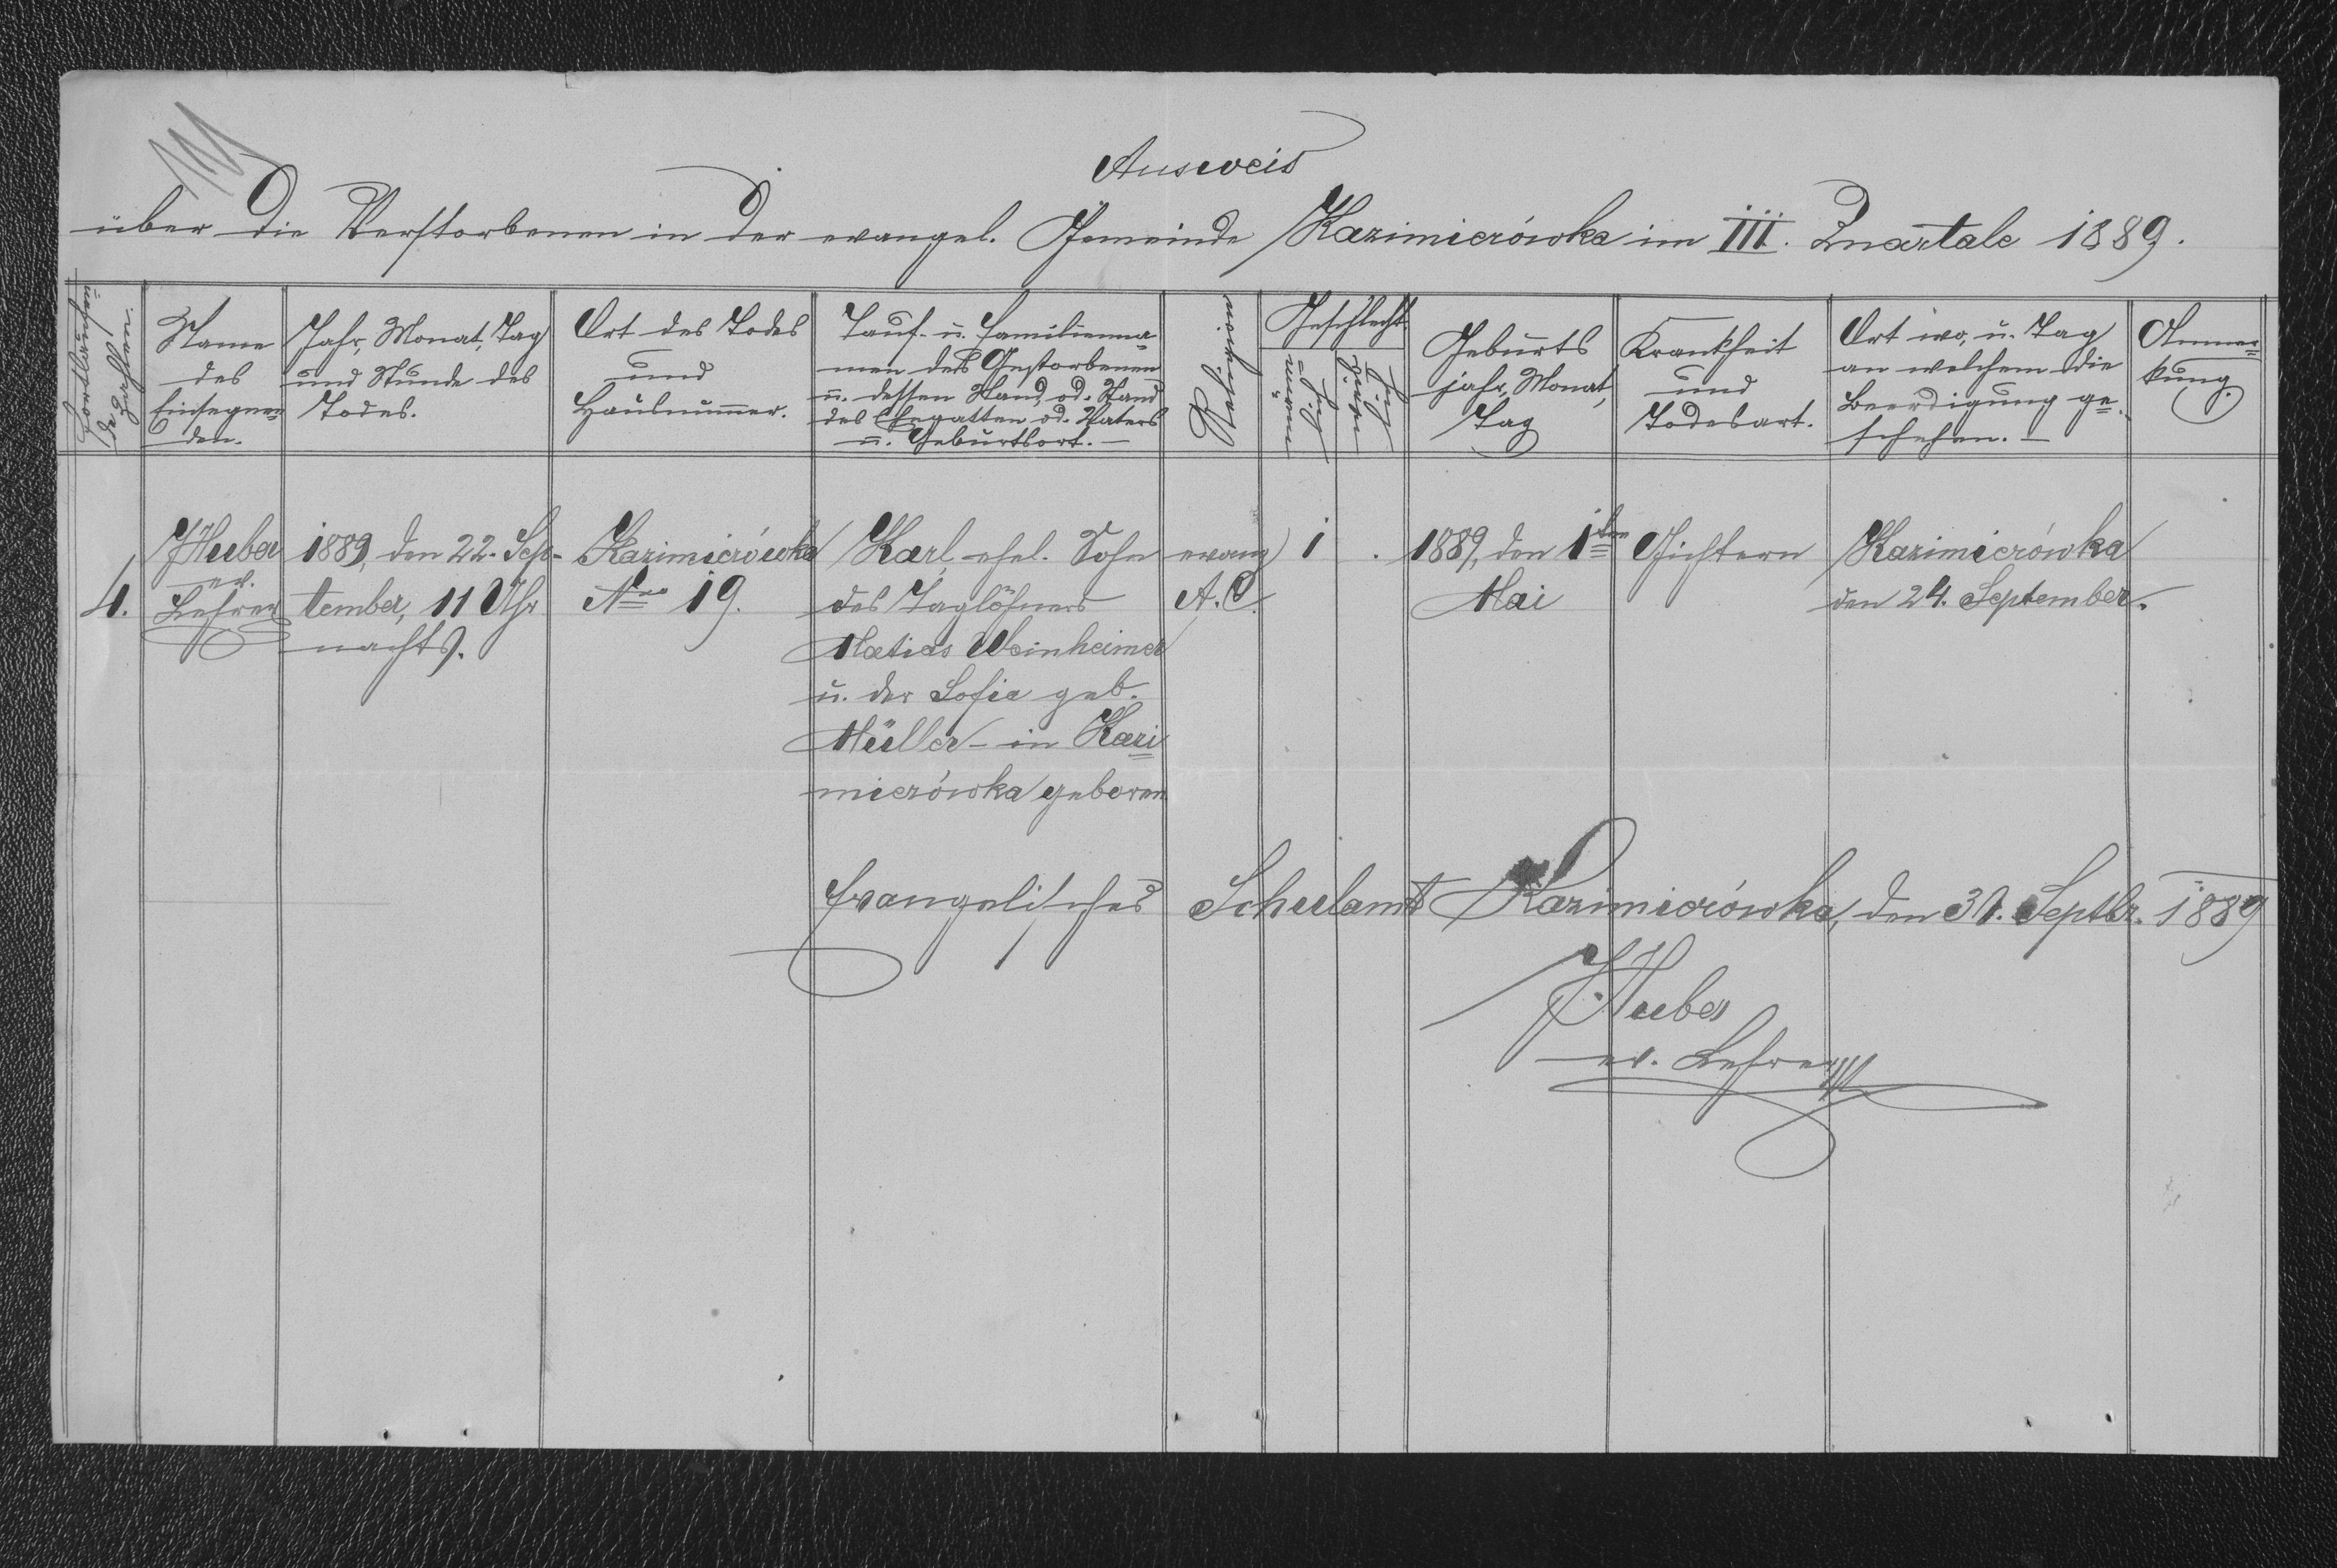 Ausweis
über die Verstorbenen in der evangel. Gemeinde Kazimierówka im III. Quartale 1889.
Fortlaufen=
de Zahlen.
Name
des
Einsegnen=
den.
Jahr, Monat, Tag
und Stunde des
Todes.
Ort des Todes
und
Hausnummer.
Tauf- u. Familienna=
men des Gestorbenen
u. dessen Stand, od. Stand
des Ehegatten od. Vaters
u. Geburtsort. —
Religion
Geschlecht
männ=
lich
weib=
lich
Geburts
jahr, Monat,
Tag
Krankheit
und
Todesart.
Ort wo, u. Tag
an welchem die
Beerdigung ge=
schehen. —
Anmer=
kung.
4.
J Huber
ev.
Lehrer
1889, den 22. Sep-
tember, 11 Uhr
nachts.
Kazimierówka
Nro 19.
Karl, ehel. Sohn
des Taglöhners
Matias Weinheimer
u. der Sofia geb.
Müller - in Kazi=
mierówka geboren
evang
A. C.
1
.
1889, den 1ten
Mai
Gichtern
Kazimierówka
den 24. September.
Evangelisches Schulamt Kazimierówka, den 30. Septbr. 1889
J Huber
ev. Lehrer